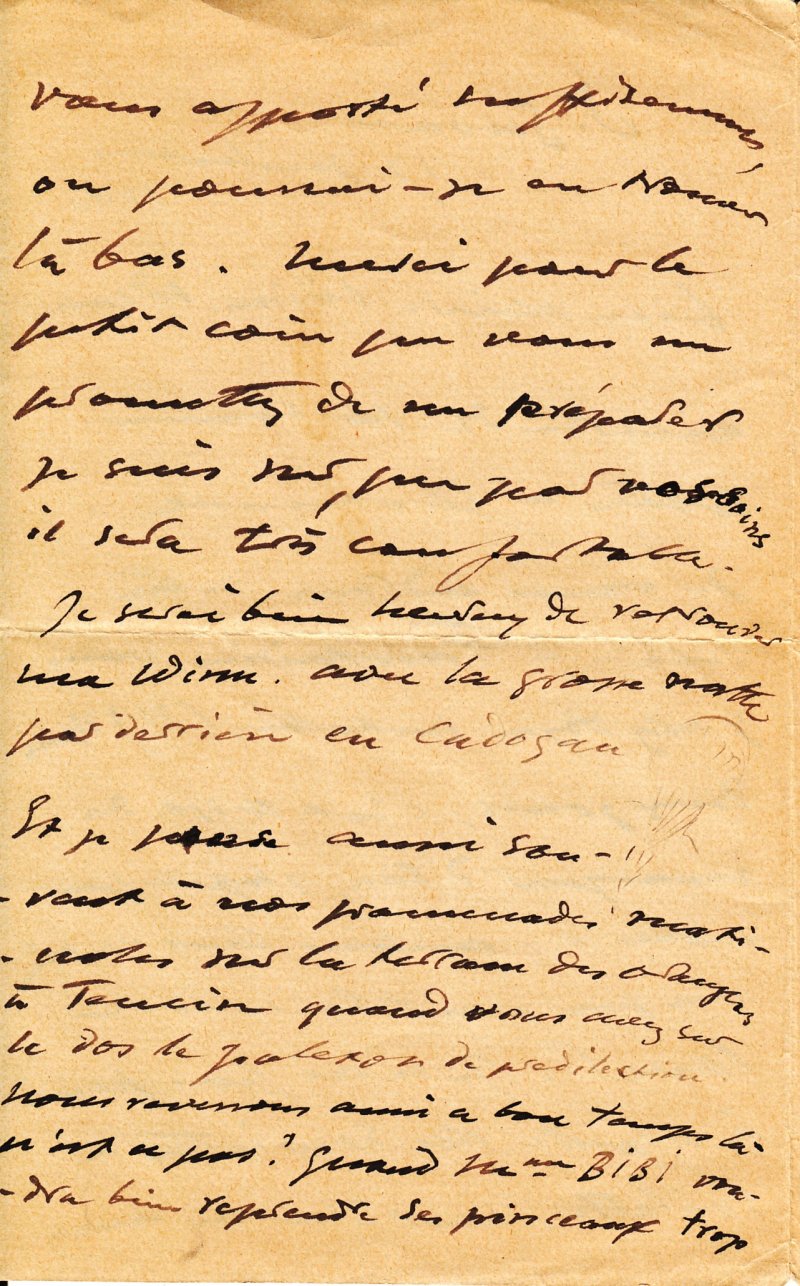 vous apporté suffisamment,
ou pourrai-je en trouver
là bas. Merci pour le
petit coin que vous me
promettez de me préparer
je suis sur, que par vos soins
il sera très confortable.
Je serai bien heureux de retrouver
ma Winn. avec la grosse natte
par derrière en Cadogan
Et je pense aussi sou-
-vent à nos promenades mati-
-nales sur la terrasse des orangers
à Tencin quand vous avez sur
le dos le paletot de predilection.
nous reverrons aussi ce bon temps là
n'est ce pas? Quand Mme BiBi vou-
-dra bien reprendre ses pinceaux trop